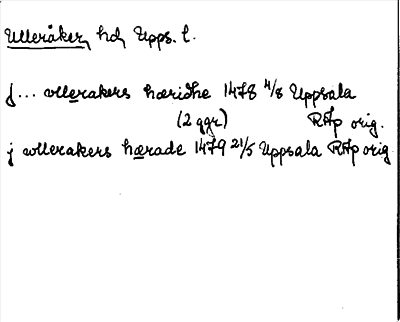 Ulleråker, hd, Upps. l.
j... vllerakers hæridhe 1478 4/8 Uppsala
(2 ggr) RAp orig.
j wllerakers hærade 1479 21/5 Uppsala RAp orig